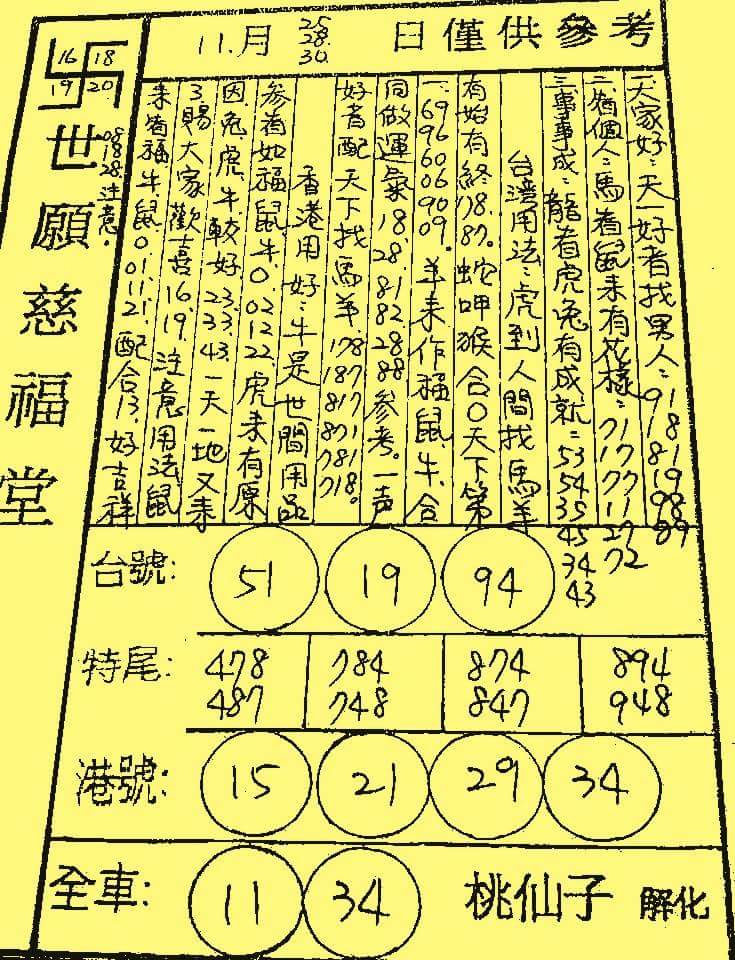 11.月 25. 28. 30. 日僅供參考
16 18
19 20.
世願慈福堂
08
18
28.注意.
一、大家好:天一好者找男人:91 18 81 19 98 89
二、猶個人:馬者鼠未有花樣:71 17 77 11 27 72
三、事事成:龍者虎兔有成就:53 54 35 45 34 43
台灣用法:虎到人間找馬羊
有始有終.78.87.蛇呷猴合0天下.第
一.69 96 60 06 90 09.羊来作福鼠.牛.合
同做運氣18.28.81 82.28 88參考。一声
好者配天下找馬羊.178 187 817 871 781 718。
香港用好:牛是世間用品
参者如福鼠.牛.0.02 12 22.虎未有原
因.兔.虎.牛.較好23.33.43.一天一地又来
3賜大家歡喜16.19.注意用法鼠
来者福.牛.鼠0.01 11 21.配合13.好吉祥
台號: 51 19 94
特尾: 478 784 874 894
487 748 847 948
港號: 15 21 29 34
全車: 11 34 桃仙子 解化